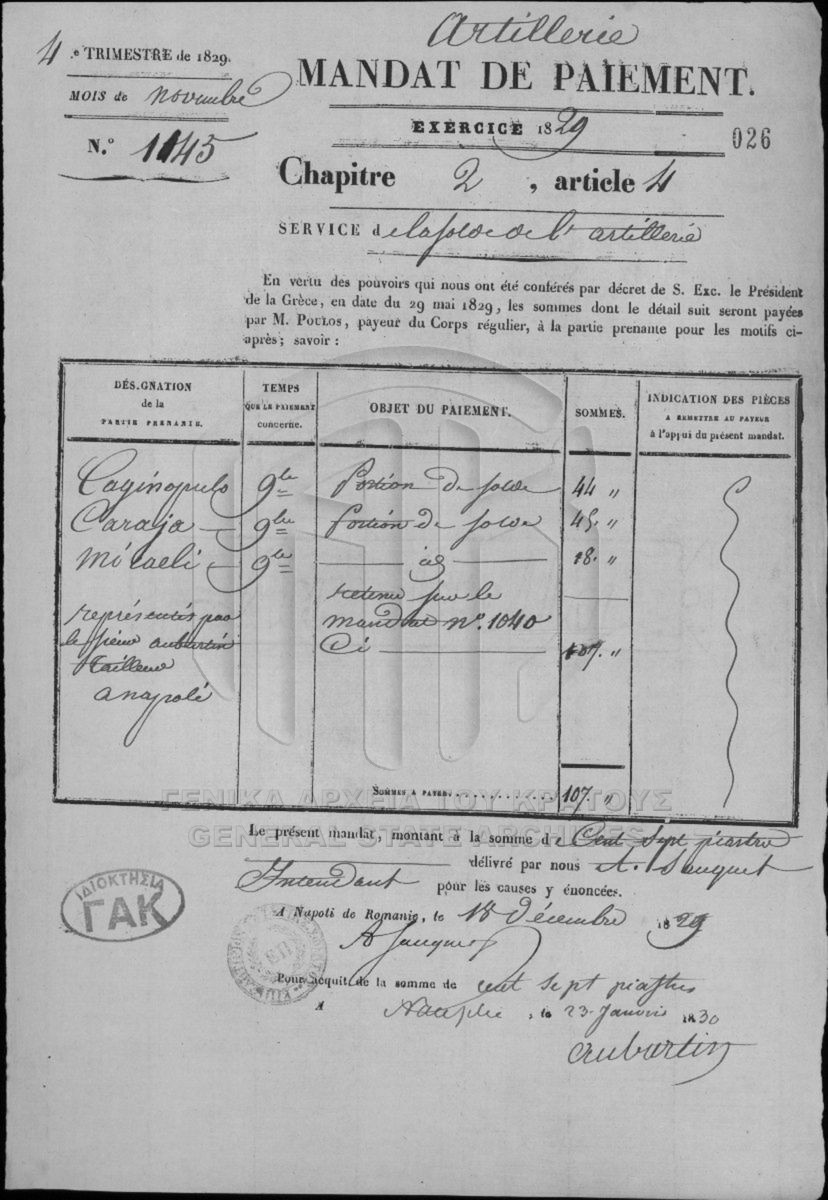 Artillerie
4.e TRIMESTRE de 1829.
MANDAT DE PAIEMENT.
MOIS de novembre
EXERCICE 1829
026
N.º 1045
Chapitre 2, article 4
SERVICE de la solde de l' artillerie
En vertu des pouvoirs qui nous ont été conférés par décret de S. Exc. le Président
de la Grèce, en date du 29 mai 1829, les sommes dont le détail suit seront payées
par M. POULOS, payeur du Corps régulier, à la partie prenante pour les motifs ci-
après; savoir :
DÉSIGNATION
de la
PARTIE PRENANTE.
TEMPS
QUE LE PAIEMENT
concerne.
OBJET DU PAIEMENT.
SOMMES.
INDICATION DES PIÈCES
A REMETTRE AU PAYEUR
à l'appui du présent mandat.
Caginopulo 9bre Portion de solde 44 "
Caraja 9bre Portion de solde 45. "
Micaeli 9bre id 18. "
retenu sur le
représentés par mandat nº. 1040
le sieur aubertin Ci 107. "
tailleur
a napoli
SOMMES A PAYER 107. "
ΓΕΝΙΚΑ ΑΡΧΕΙΑ ΤΟΥ ΚΡΑΤΟΥΣ
GENERAL STATE ARCHIVES
Le présent mandat, montant à la somme de Cent sept piastres
délivré par nous A. Sauquet
Intendant pour les causes y énoncées.
A Napoli de Romanie, le 18 décembre 1829
ΙΔΙΟΚΤΗΣΙΑ
ΓΑΚ
A Sauquet
Pour acquit de la somme de cent sept piastres
A Nauplie, le 23 Janvier 1830
Aubertin